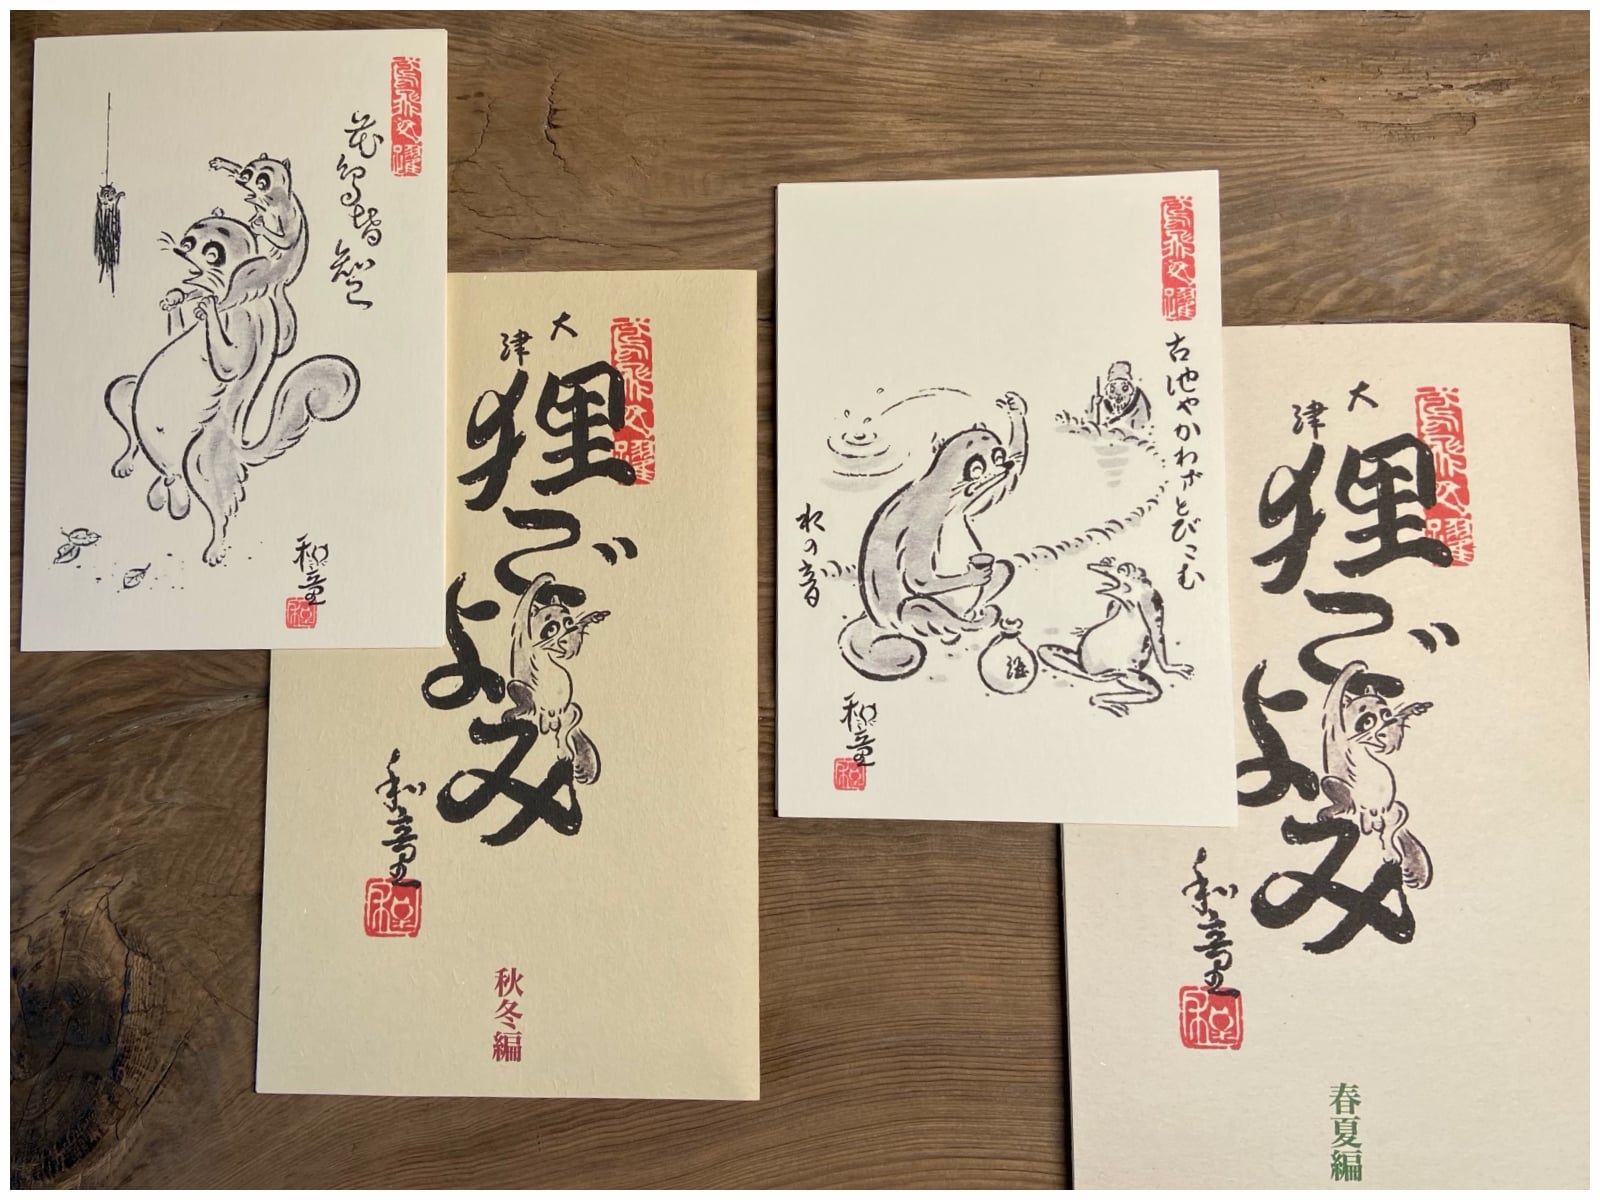 和童
大津
狸ごよみ
和童
秋冬編
古池やかわずとびこむ
水の音
和童
大津
狸ごよみ
和童
春夏編